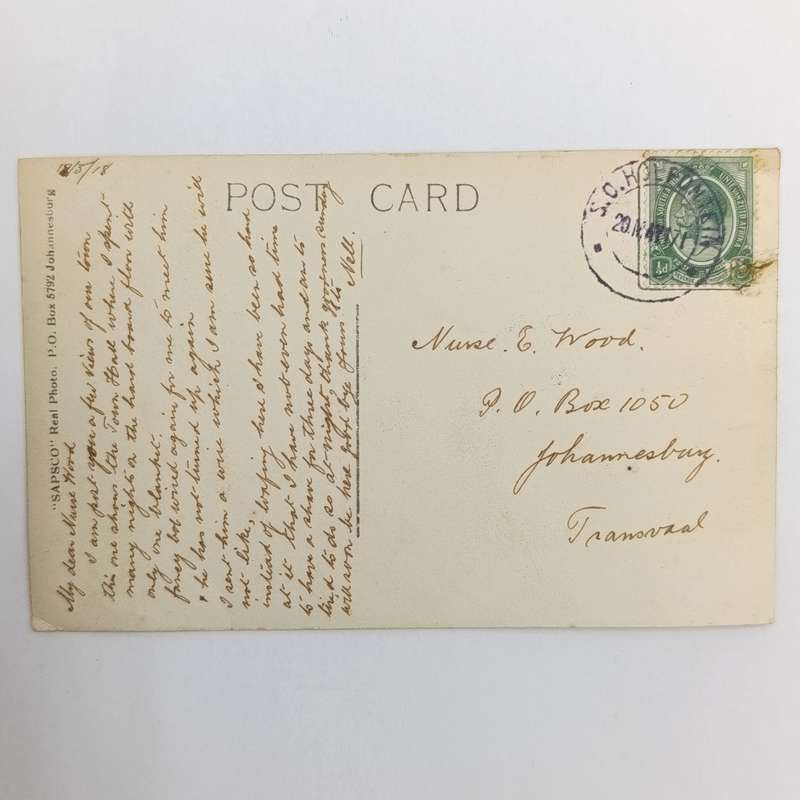 18/5/18
POST CARD
"SAPSCO" Real Photo. P.O. Box 5792 Johannesburg
My dear Nurse Wood
I am post you a few views of our town
this one shows the Town Hall where I spent
many nights on the hard board floor with
only one blanket.
fancy bob wired again for me to meet him
he has not turned up again
I sent him a wire which I am sure he will
not like,
instead of loofing here I have been so hard
at it that I have not even had time
to have a shave for three days and am to
tired to do so at night, thank goodness Sunday
will soon be here good bye Yours Ets Nell.
Nurse. E. Wood.
P. O. Box 1050
Johannesburg.
Transvaal
20 MAY
½d